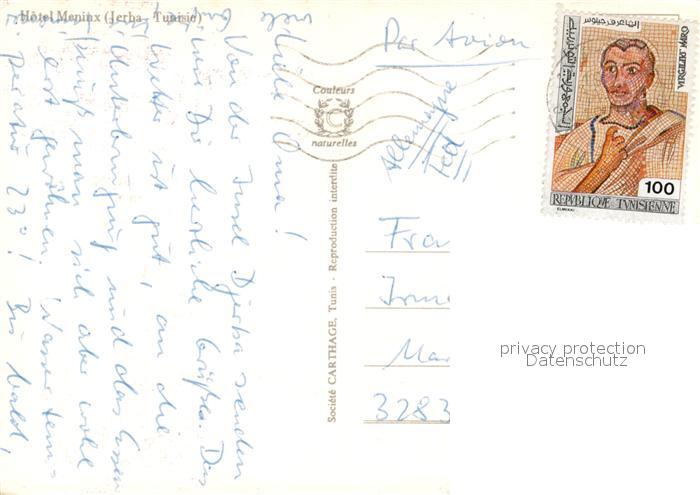 Hôtel Meninx (Jerba - Tunisie)
Liebe Oma!
Von der Insel Djerba senden
wir Dir herzliche Grüße. Das
Wetter ist gut, an die
Unterbringung und das Essen
muß man sich aber wohl
erst gewöhnen. Wassertem-
peratur 23°! Bis bald,
Couleurs
naturelles
Société CARTHAGE, Tunis - Reproduction interdite
Par Avion
Allemagne
Fed
Fra
Irm
Mar
3283
VIRGILIUS MARO
100
REPUBLIQUE TUNISIENNE
privacy protection
Datenschutz